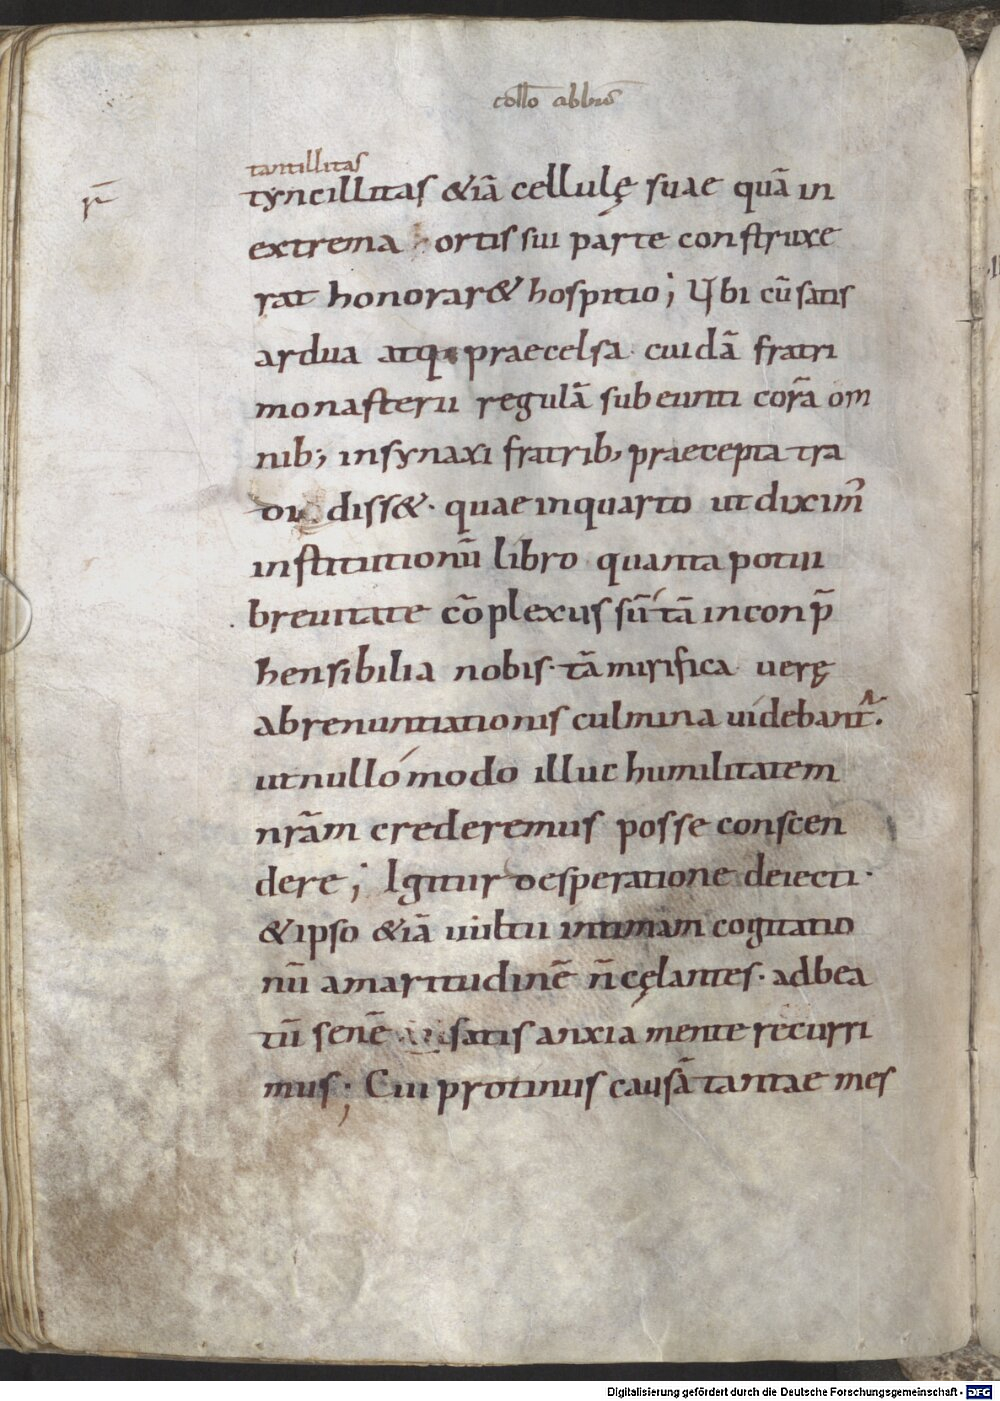 tantillitas
tyncillitas &iā cellulę suae quā in
extrema ortis sui parte construxe
rat honorar& hospitio; Ubi cū satis
ardua atq praecelsa cuidā fratri
monasterii regulā subeunti corā om
nib; in synaxi fratrib; praecepta tra
di diss&. quae in quarto ut diximꝰ
institutionū libro quanta potui
breuitate cōplexus sū tā inconp̄
hensibilia nobis. tā mirifica uerę
abrenuntiationis culmina uidebant̄.
ut nullo modo illuc humilitatem
nrām crederemus posse conscen
dere; Igitur desperatione deiecti.
& ipso &iā uultu intimam cogitatio
nū amaritudinē n̄ cęlantes. ad bea
tū senē satis anxia mente recurri
mus; Cui protinus causā tantae mes
Digitalisierung gefördert durch die Deutsche Forschungsgemeinschaft - DFG